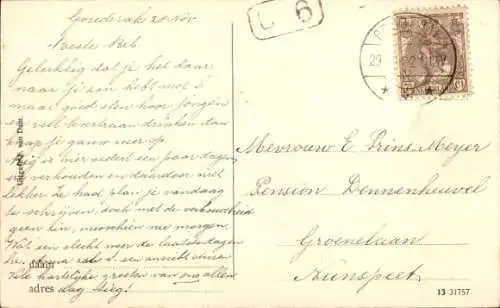 Gouderak 28 Nov
L 6
Beste Beb
Gelukkig dat je het daar
naar je zin hebt
maar goed eten hoor jongen
en veel levertraan drinken dan
knap je gauw weer op.
is hier vedert een paar dagen
verkouden en daardoor niet
lekker. Ze had plan je vandaag
te schrijven, doch met de verkoudheid
geen zin, misschien morgen.
Wat een slecht weer de laatste dagen
he.
hartelijke groeten van ons allen
dag
daar
adres
Uitgave van
Mevrouw E Prins-Meyer
Pension Dennenheuvel
Groenelaan
Nunspeet
13 31757